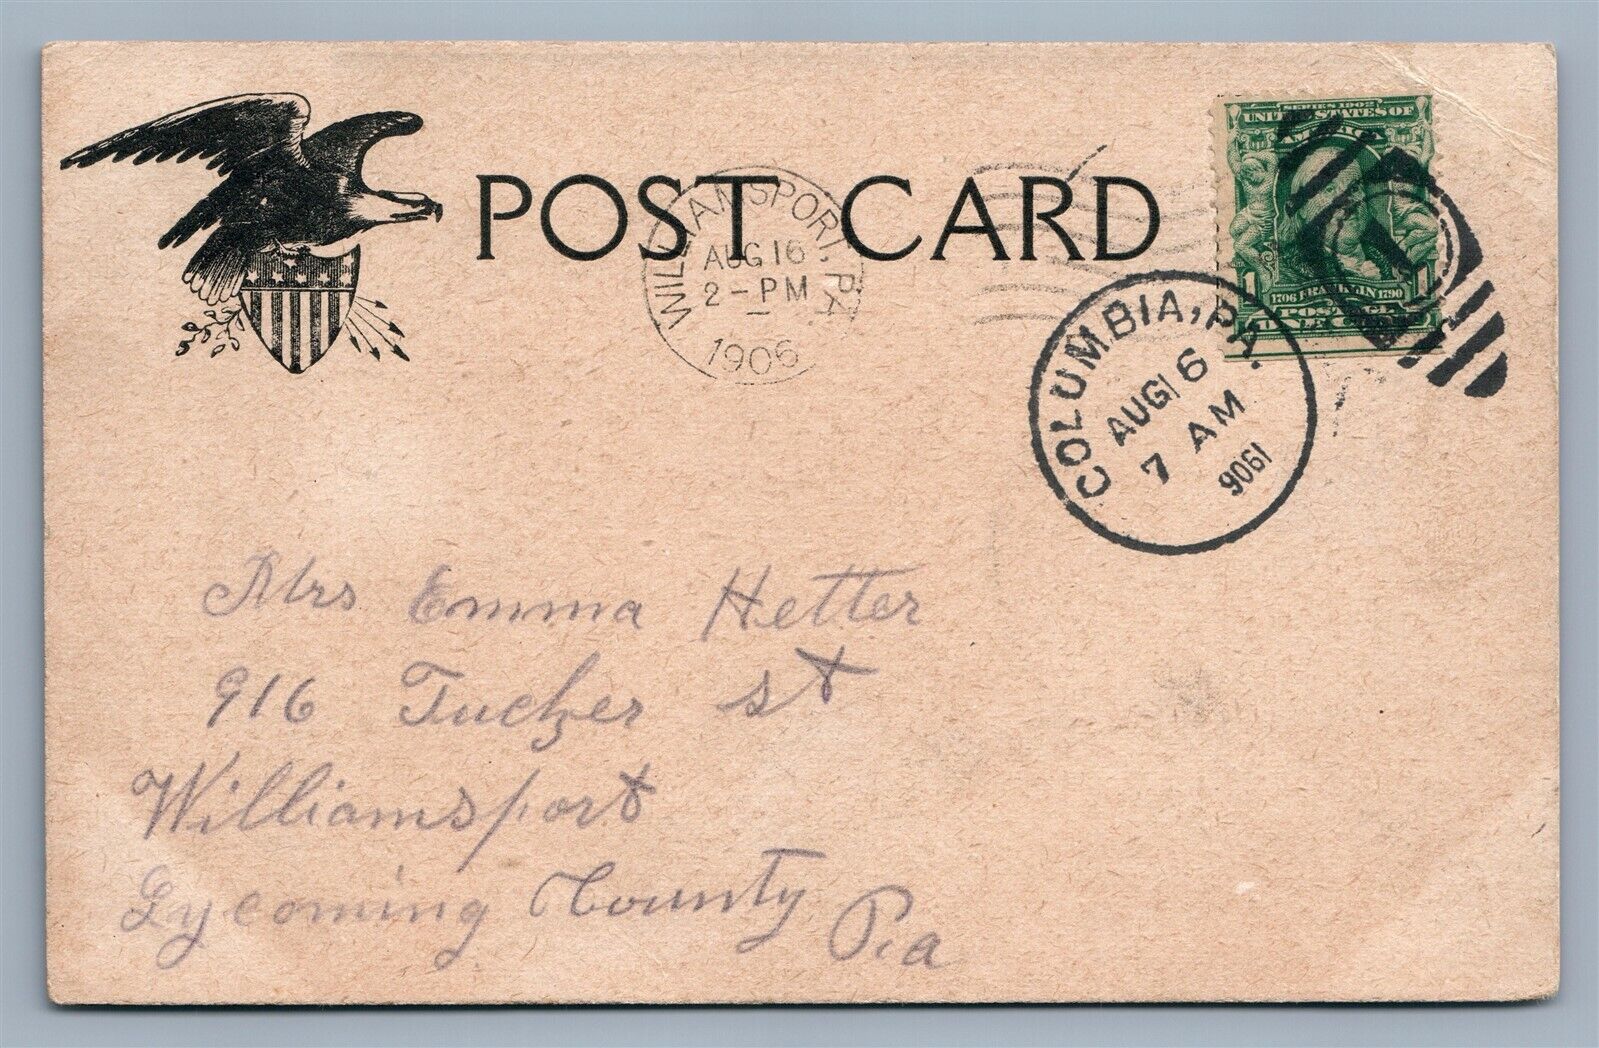 POST CARD
WILLIAMSPORT, PA.
AUG 16
2 - PM
1906
SERIES 1902
UNITED STATES OF
AMERICA
1
1706 FRANKLIN 1790
POSTAGE
ONE CENT
COLUMBIA, PA.
AUG 16
7 AM
1906
1
Mrs Emma Hetter
916 Tucker st
Williamsport
Lycoming County
Pa